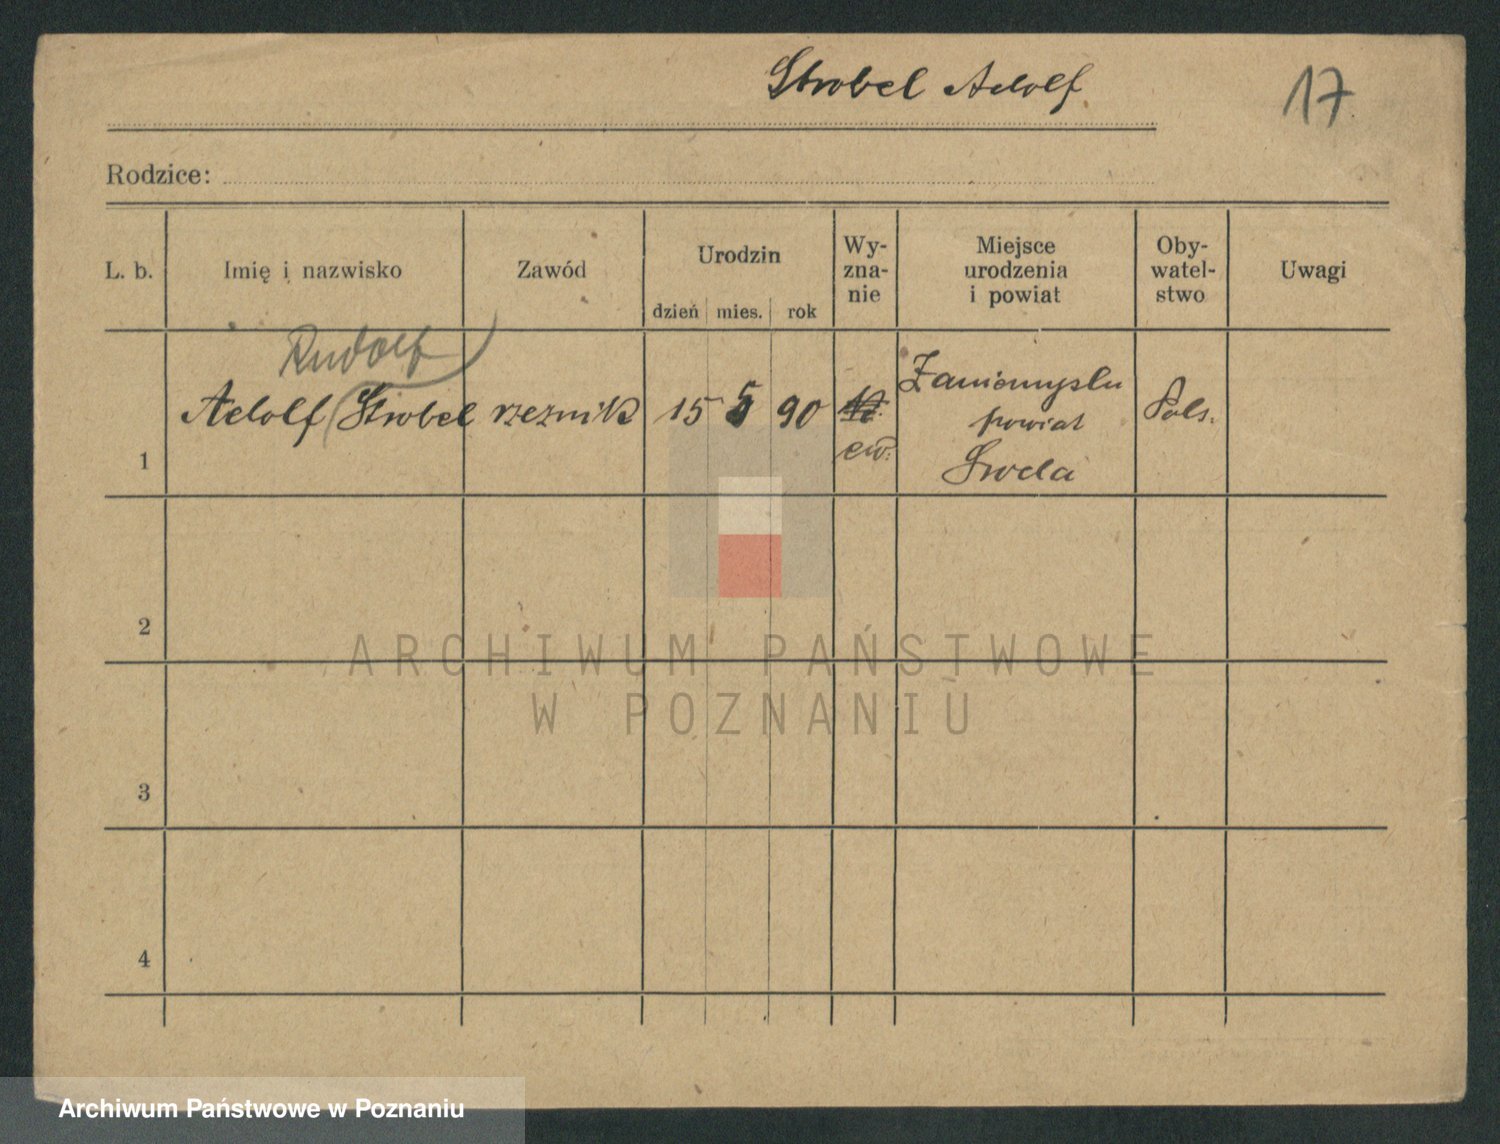 Strobel Adolf
17
Rodzice:
L. b. Imię i nazwisko Zawód Urodzin dzień mies. rok Wy-zna-nie Miejsce urodzenia i powiat Oby-watel-stwo Uwagi
Rudolf
1 Adolf Strobel rzeznik 15 5 90 ew. Zaniemyslu powiat Sroda Pols.
2
3
4
ARCHIWUM PAŃSTWOWE
W POZNANIU
Archiwum Państwowe w Poznaniu